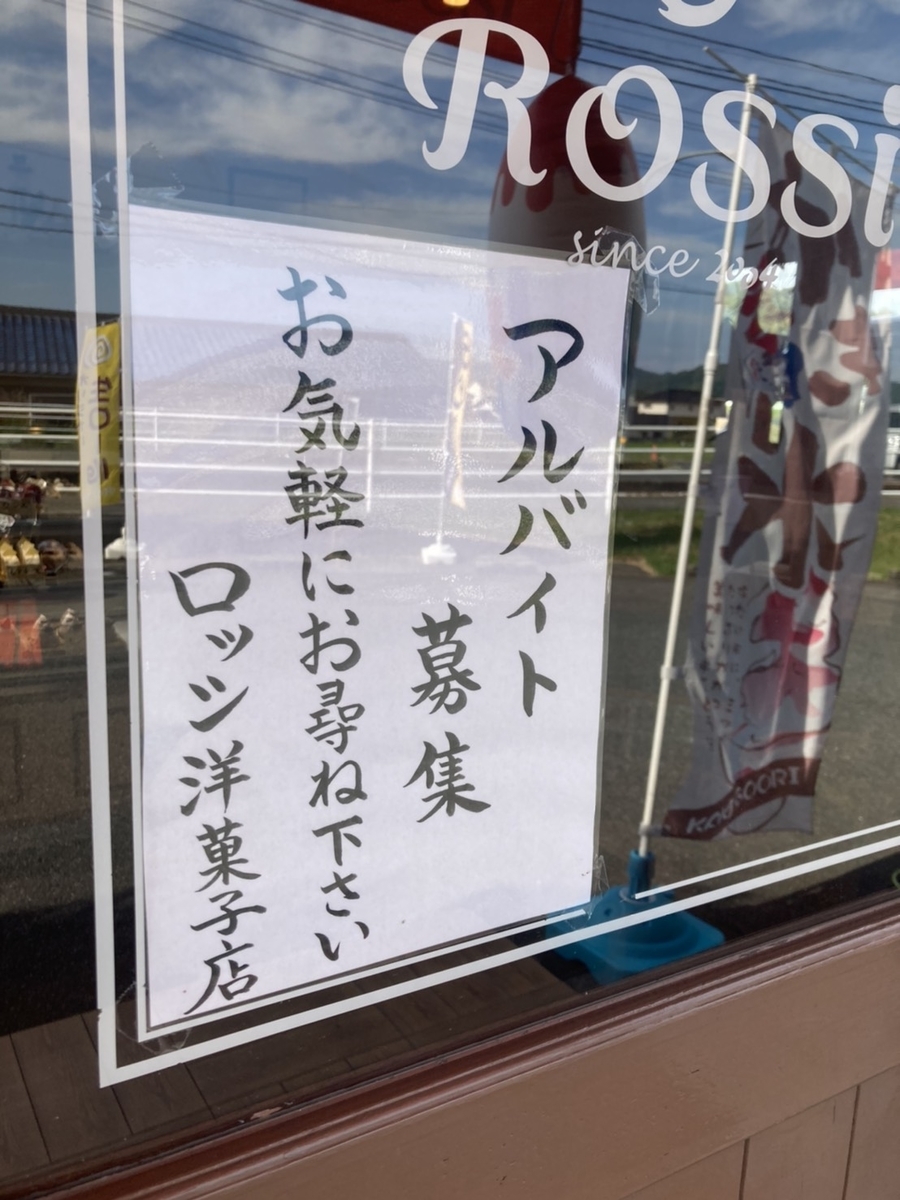 Rossi
since 2004
アルバイト
募集
お気軽にお尋ね下さい
ロッシ洋菓子店